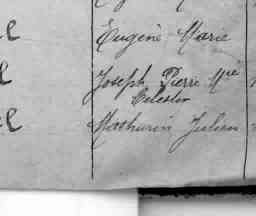 Eugène Marie
Joseph Pierre Mie
Célestin
Mathurin Julien